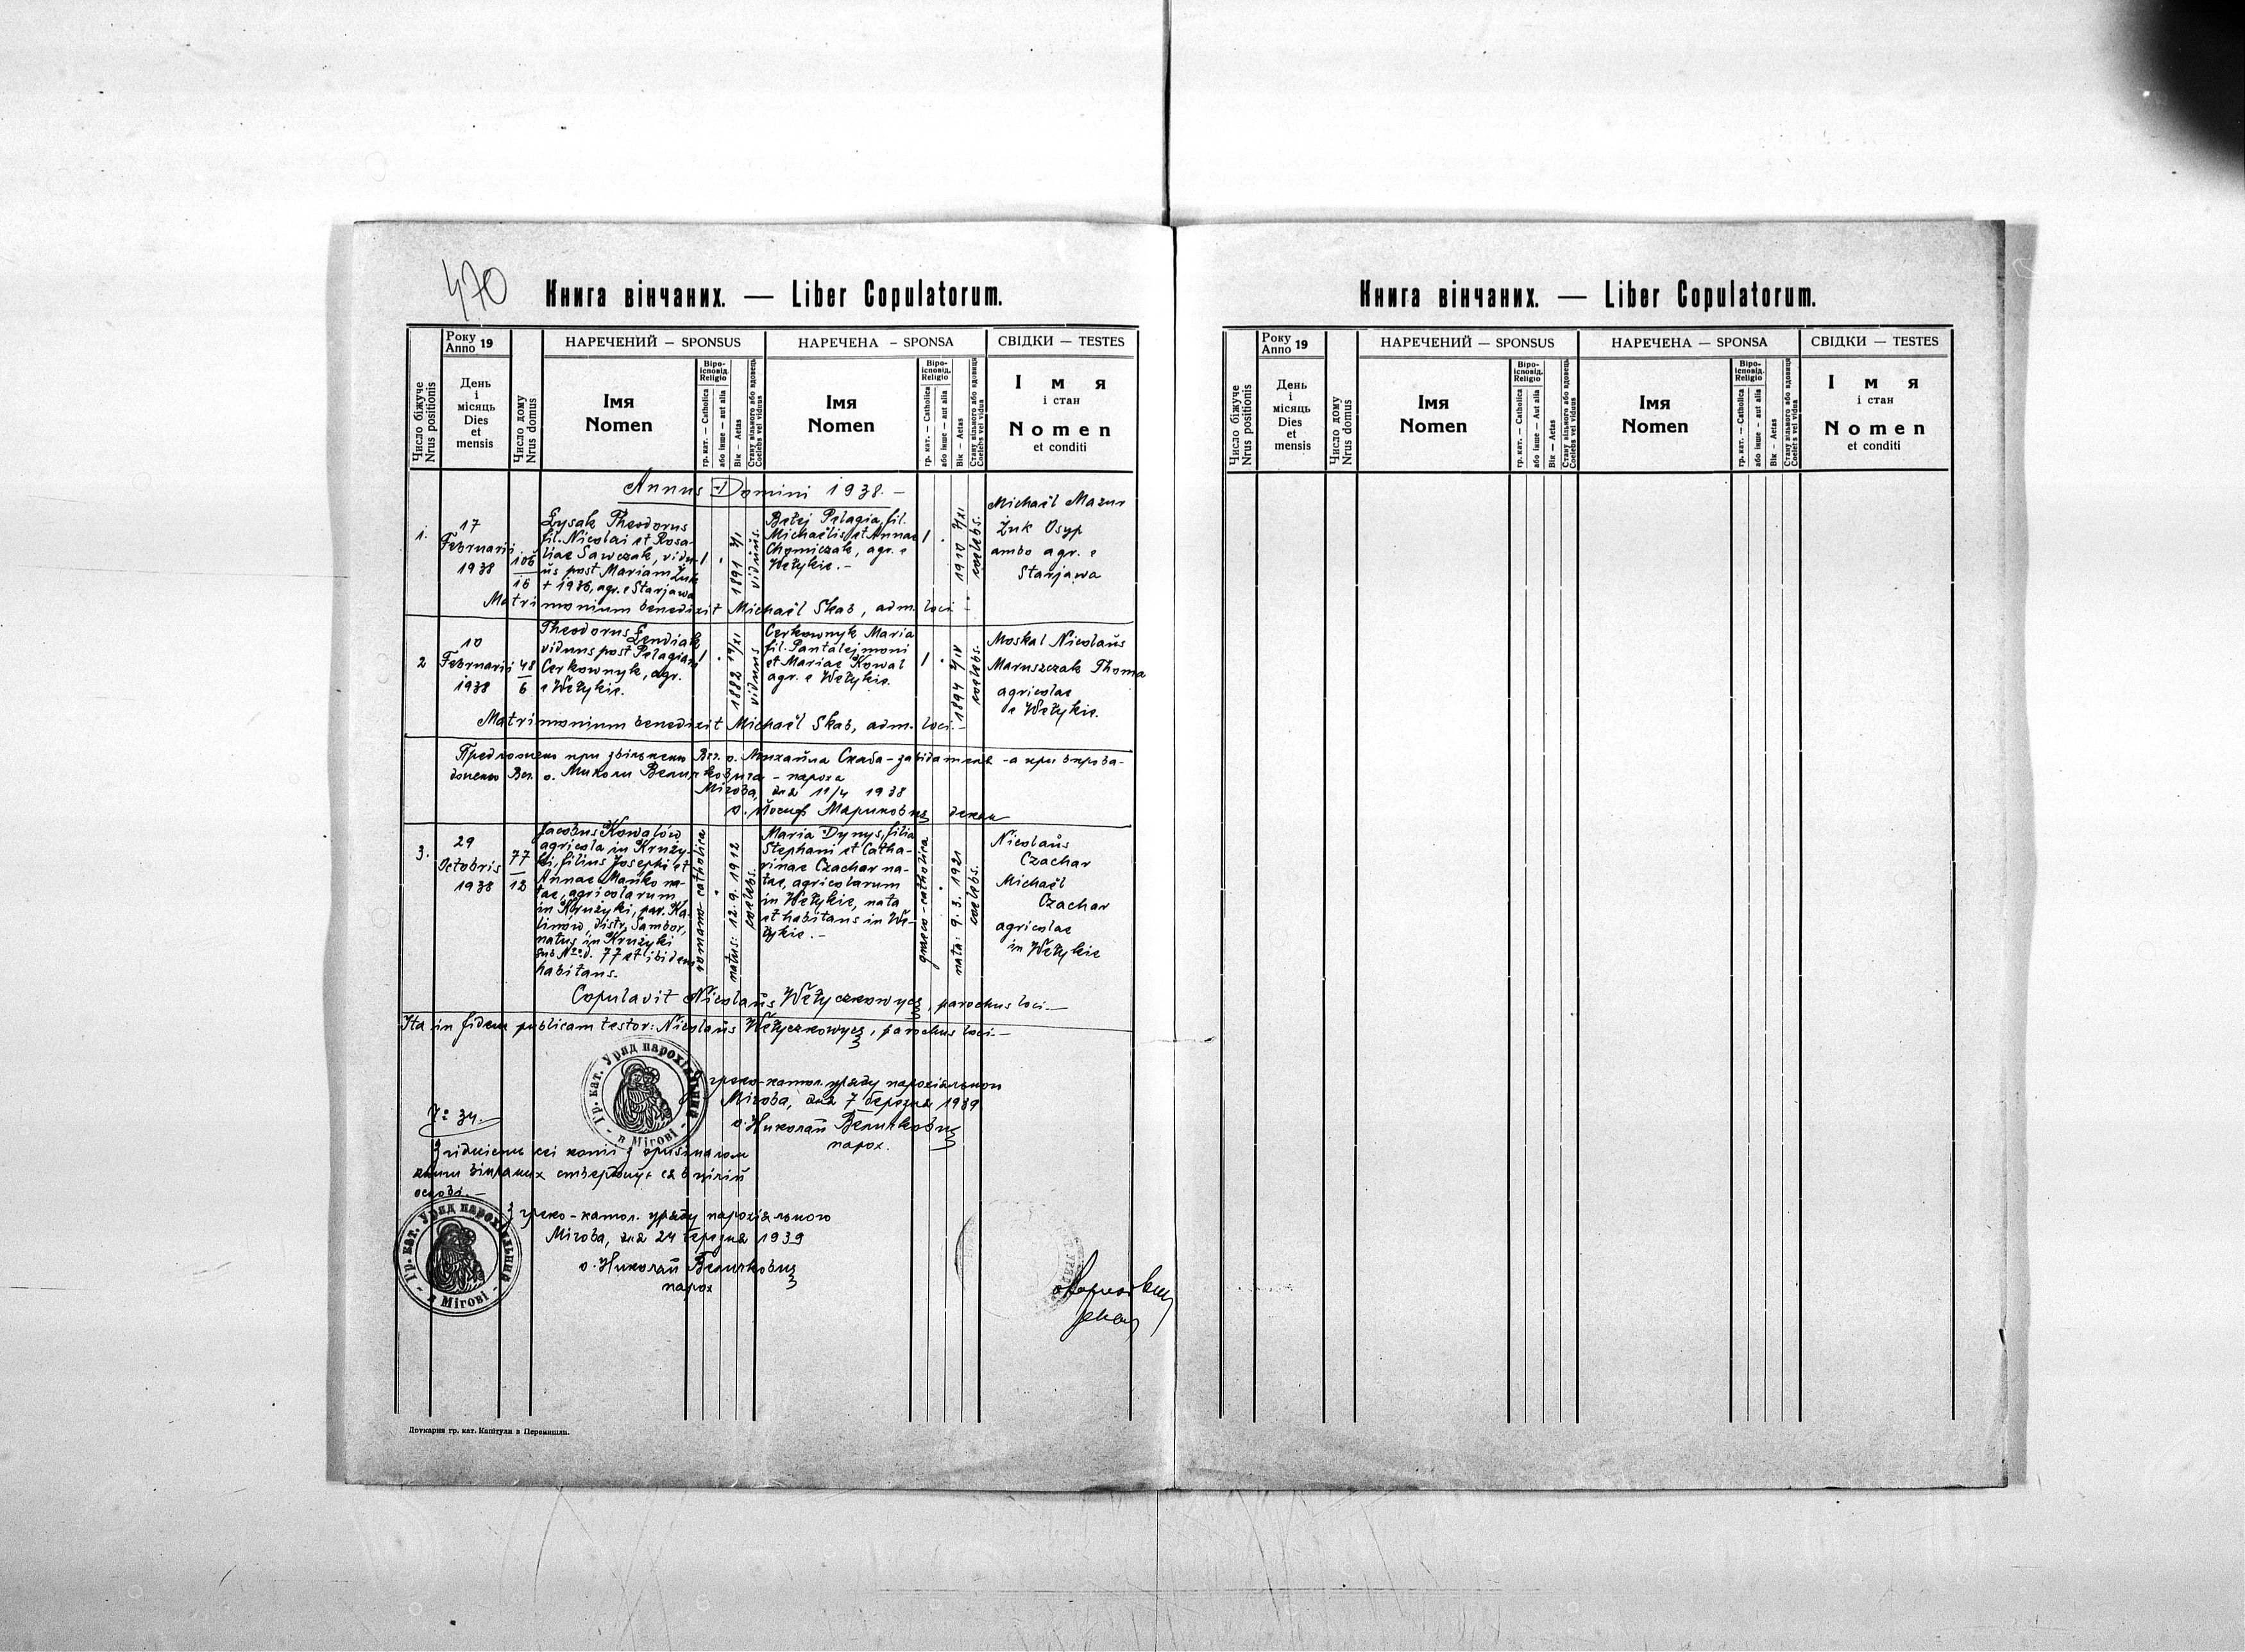 470
Книга вінчаних. — Liber Copulatorum.
Року
Anno 19
НАРЕЧЕНИЙ – SPONSUS
НАРЕЧЕНА – SPONSA
СВІДКИ — TESTES
Число біжуче
Nrus positionis
День
і
місяць
Dies
et
mensis
Число дому
Nrus domus
Імя
Nomen
Віро-
ісповід.
Religio
гр. кат. – Catholica
або інше – aut alia
Вік – Aetas
Стану вільного або вдовець
Coelebs vel viduus
Імя
Nomen
Віро-
ісповід.
Religio
гр. кат. – Catholica
або інше – aut alia
Вік – Aetas
Стану вільного або вдовиця
Coelebs vel vidua
Імя
і стан
Nomen
et conditi
Annus Domini 1938. –
1.
17
Februarii
1938
106
16
Łysak Theodorus
fil. Nicolai et Rosa-
liae Sawczak, vidu-
us post Mariam Żuk
+ 1936, agr. e Starjawa
1
1891
viduus.
Betej Pelagia, fil.
Michaëlis et Annae
Chomiczak, agr. e
Wełykie. –
1
1910
coelebs.
Michaël Mazur
Żuk Osyp
ambo agr. e
Starjawa
Matrimonium benedixit Michaël Skab, adm. loci –
2
10
Februarii
1938
48
6
Theodorus Łendiak
viduus post Pelagiam
Cerkownyk, agr.
e Wełykie.
1
1882
viduus
Cerkownyk Maria
fil. Pantalejmoni
et Mariae Kowal
agr. e Wełykie.
1
1894
coelebs.
Moskal Nicolaus
Maruszczak Thoma
agricolae
e Wełykie.
Matrimonium benedixit Michaël Skab, adm. loci. –
Предложено при звільненю Вср. о. Михайла Скаба – завідателя – а при впрова-
дженю Вср. о. Миколи Величковича – пароха
Мігова, дня 11/4 1938
о. Йосиф Маринович декан
3.
29
Octobris
1938
77
12
Jacobus Kowalów
agricola in Kruży-
ki, filius Josephi et
Annae Mańko na-
tae, agricolarum
in Krużyki, par. Ka-
linów, distr. Sambor,
natus in Krużyki
sub Nro d. 77 et ibidem
habitans.
romano-catholica
natus: 12.9.1912
coelebs.
Maria Dynys, filia
Stephani et Catha-
rinae Czachar na-
tae, agricolarum
in Wełykie, nata
et habitans in We-
łykie. –
graeco-catholica
nata: 9.3.1921
coelebs.
Nicolaus
Czachar
Michaël
Czachar
agricolae
in Wełykie
Copulavit Nicolaus Wełyczkowycz, parochus loci. –
Ita in fidem publicam testor: Nicolaus Wełyczkowycz, parochus loci. –
Гр. кат. Уряд парохіяльний
в Мігові
З греко-катол. уряду парохіяльного
Мігова, дня 7 березня 1939
о. Николай Величкович
парох.
34.
Згідність сеї копії з оригіналом
книги вінчаних стверджує ся в цілій
основі. –
Гр. кат. Уряд парохіяльний
в Мігові
З греко-катол. уряду парохіяльного
Мігова, дня 24 березня 1939
о. Николай Величкович
парох
декан
Друкарня гр. кат. Капітули в Перемишли.
Книга вінчаних. — Liber Copulatorum.
Року
Anno 19
НАРЕЧЕНИЙ – SPONSUS
НАРЕЧЕНА – SPONSA
СВІДКИ — TESTES
Число біжуче
Nrus positionis
День
і
місяць
Dies
et
mensis
Число дому
Nrus domus
Імя
Nomen
Віро-
ісповід.
Religio
гр. кат. – Catholica
або інше – Aut alia
Вік – Aetas
Стану вільного або вдовець
Coelebs vel viduus
Імя
Nomen
Віро-
ісповід.
Religio
гр. кат. – Catholica
або інше – aut alia
Вік – Aetas
Стану вільного або вдовиця
Coelebs vel vidua
Імя
і стан
Nomen
et conditi